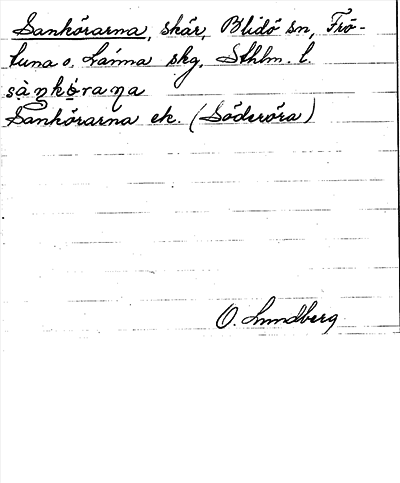 Sankörarna, skär, Blidö sn, Frö-
tuna o. Länna skg, Sthlm. l.
Sankörarna ek. (Söderöra)
O. Lundberg